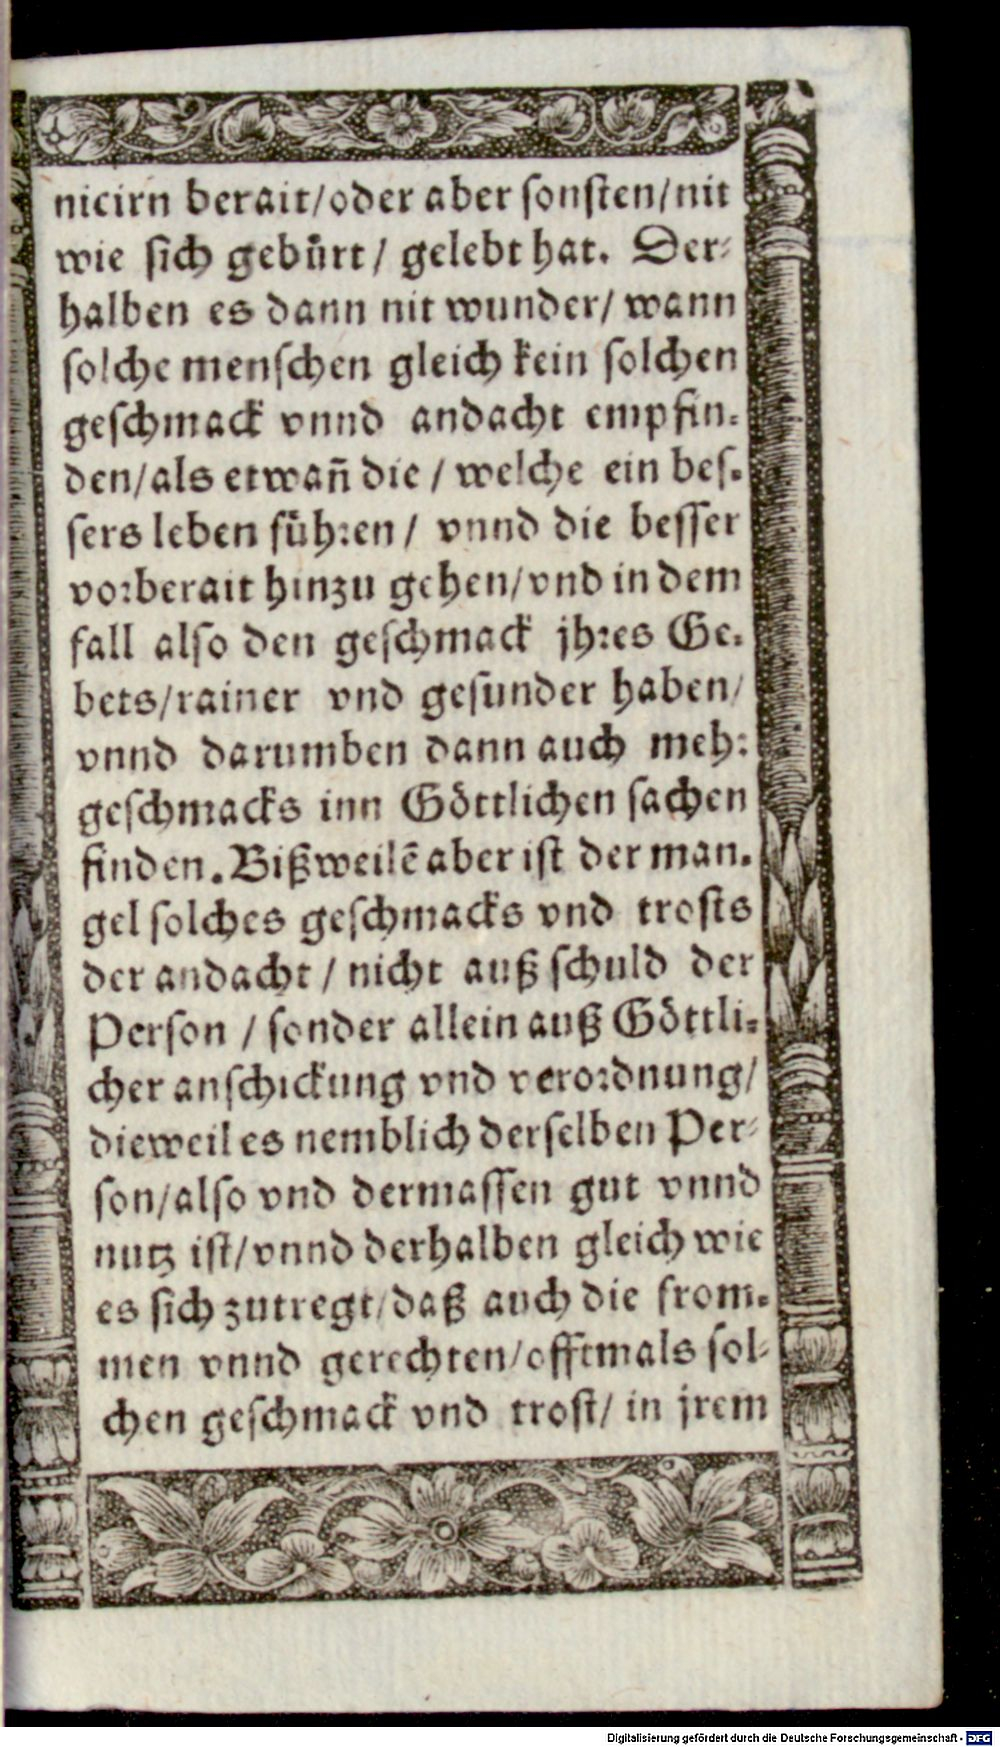 nicirn berait/oder aber sonsten/nit
wie sich gebuͤrt/ gelebt hat. Der-
halben es dann nit wunder/ wann
solche menschen gleich kein solchen
geschmack vnnd andacht empfin-
den/als etwañ die/ welche ein bes-
sers leben fuͤhren/ vnnd die besser
vorberait hinzu gehen/vnd in dem
fall also den geschmack jhres Ge-
bets/rainer vnd gesunder haben/
vnnd darumben dann auch mehr
geschmacks inn Goͤttlichen sachen
finden. Bißweilẽ aber ist der man-
gel solches geschmacks vnd trosts
der andacht/ nicht auß schuld der
Person/ sonder allein auß Goͤttli-
cher anschickung vnd verordnung/
dieweil es nemblich derselben Per-
son/also vnd dermassen gut vnnd
nutz ist/vnnd derhalben gleich wie
es sich zutregt/daß auch die from-
men vnnd gerechten/offtmals sol-
chen geschmack vnd trost/ in jrem
Digitalisierung gefördert durch die Deutsche Forschungsgemeinschaft - DFG